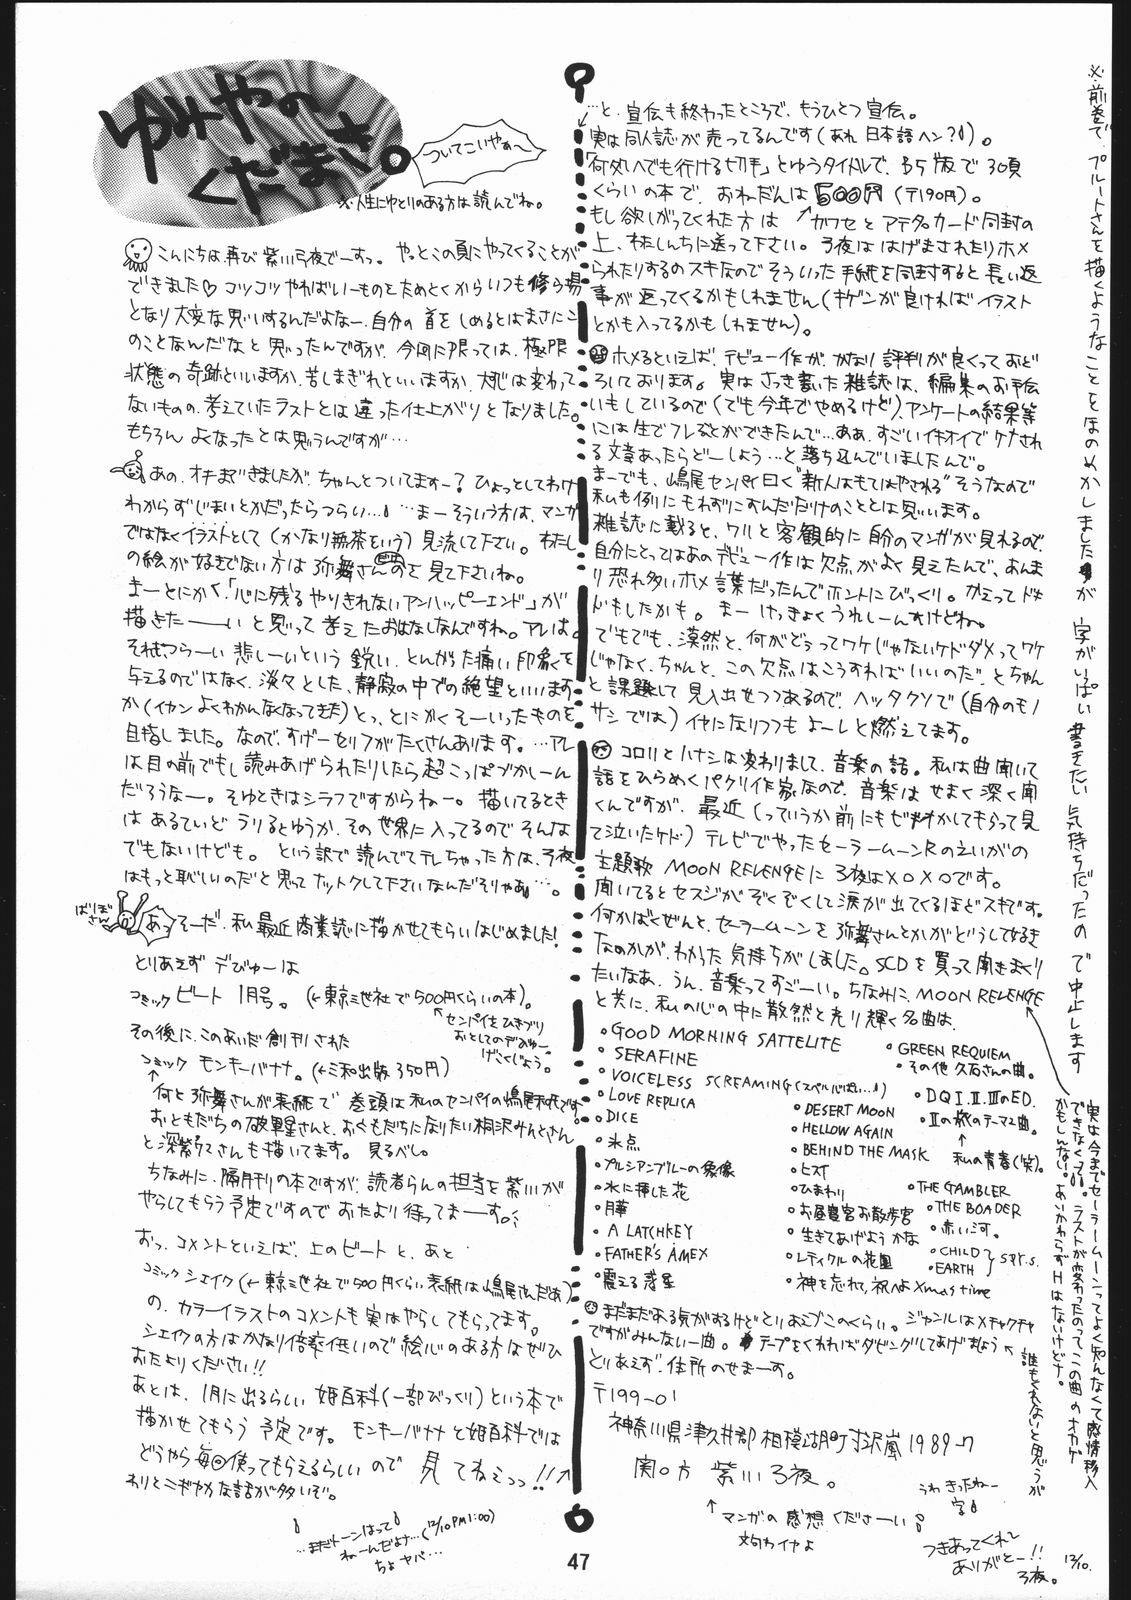 ゆみやの
くだまき。
ついてこいやぁ〜
※人生にゆとりのある方は読んでね。
こんにちは、再び紫川弓夜でーすっ。やっとこの頁にやってくることが
できました♡コツコツやればいーものをためとくからいつも修ら場
となり大変な思いするんだよなー。自分の首をしめるとはまさにこ
のことなんだなと思ったんですが、今回に限っては、極限
状態の奇跡といいますか、苦しまぎれといいますか、大体は変わって
ないものの、考えていたラストとは違った仕上がりとなりました。
もちろんよくなったとは思うんですが…
あの、オキまできましたが、ちゃんとついてますー?ひょっとしてわけ
わからずじまいとかだったらつらい…! …まーそういう方は、マンガ
ではなくイラストとして(かなり無茶をいう)見流して下さい。わたし
の絵が好きでない方は弥舞さんのを見て下さいね。
まーとにかく、「心に残るやりきれないアンハッピーエンド」が
描きたーーいと思って考えたおはなしなんですね。アレは。
それも、つらーい悲しーいという鋭い、とんがった痛い印象を
与えるのではなく、淡々とした、静寂の中での絶望といいます
か(イカンよくわかんなくなってきた)とっ、とにかくそーいったものを
目指しました。なので、すげーセリフがたくさんあります。…アレ
は目の前でもし読みあげられたりしたら超こっぱづかしーん
だろうなー。そゆときはシラフですからねー。描いてるとき
はあるていどラリるとゆうか、その世界に入ってるのでそんな
でもないけども。という訳で読んでてテレちゃった方は、弓夜
はもっと恥しいのだと思ってナットクして下さいなんだそりゃあ…。
ばりぼさん
あっそーだ、私最近商業誌に描かせてもらいはじめました!
とりあえずデびゅーは
コミックビート1月号。(←東京三世社で500円くらいの本)。
センパイをひきづり
おとしてのデびゅー。
げこくじょう。
その後に、このあいだ創刊された
コミックモンキーバナナ。(←三和出版350円)
何と弥舞さんが表紙で巻頭は私のセンパイの嶋尾和さんです。
おともだちの破軍星さんと、おともだちになりたい相沢みんとさん
と深紫ゥてさんも描いてます。見るべし。
ちなみに、隔月刊の本ですが、読者らんの担当を紫川が
やらしてもらう予定ですのでおたより待ってまーーす。
おっ、コメントといえば、上のビートと、あと
コミックシェイク(←東京三世社で500円くらい表紙は嶋尾さんだぁ)
の、カラーイラストのコメントも実はやらしてもらってます。
シェイクの方はかなり倍率低いので絵心のある方はぜひ
おたよりください!!
あとは、1月に出るらしい姫百科(一部びっくり)という本で
描かせてもらう予定です。モンキーバナナと姫百科では
どうやら毎回使ってもらえるらしいので見てねえっっ!!
わりとニギやかな話が多いぞ。
…まだトーンはって
ねーんだよナ…(12/10PM1:00)
ちょヤバ…
…と、宣伝も終わったところで、もうひとつ宣伝。
実は同人誌が売ってるんです(あれ日本語ヘン?!)。
「何処へでも行ける切手」とゆうタイトルで、B5版で30頁
くらいの本で、おねだんは500円(〒190円)。
もし欲しがってくれた方は カワセとアテ名カード同封の
上、わたしんちに送って下さい。弓夜ははげまされたりホメ
られたりするのスキなのでそういった手紙を同封すると長い返
事が返ってくるかもしれません(キゲンが良ければイラスト
とかも入ってるかもしれません)。
ホメるといえば、デビュー作が、かなり評判が良くっておど
ろいております。実はさっき書いた雑誌は、編集のお手伝
いもしているので(でも今年でやめるけど)、アンケートの結果等
には生でフレることができたんで…ああ、すごいイキオイでケナされ
る文章あったらどーしよう…と落ち込んでいましたんで。
まーでも、嶋尾センパイ曰く"新人はもてはやされる"そうなので
私も例にもれずにすんだだけのこととは思います。
雑誌に載ると、ワリと客観的に自分のマンガが見れるので、
自分にとってはあのデビュー作は欠点がよく見えたんで、あんま
り恐れ多いホメ言葉だったんでホントにびっくり。かえってドキ
ドキもしたかも。まーけっきょくうれしーんすけどね。
でもでも、漠然と、何がどうってワケじゃないケドダメってワケ
じゃなく、ちゃんと、この欠点はこうすればいいのだ、とちゃん
と課題として見入出せつつあるので、ヘッタクソで(自分のモノ
サシでは)イヤになりつつもよーしと燃えてます。
コロリとハナシは変わりまして、音楽の話。私は曲聞いて
話をひらめくパクリ作家なので、音楽はせまく深く聞
くんですが、最近(っていうか前にもビデオかしてもらって見
て泣いたケド)テレビでやったセーラームーンRのえいがの
主題歌 MOON REVENGEに弓夜はXOXOです。
聞いてるとセスジがぞくぞくして涙が出てくるほどスキです。
何かばくぜんと、セーラームーンを弥舞さんとかがどうして好き
なのかが、わかった気持ちがしました。SCDを買って聞きまくり
たいなあ。うん、音楽ってすごーい。ちなみに、MOON REVENGE
と共に、私の心の中に散然と光り輝く名曲は、
・GOOD MORNING SATTELITE
・SERAFINE
・VOICELESS SCREAMING(スペル心ぱい…!)
・LOVE REPLICA
・DICE
・氷点
・プルシアンブルーの肖像
・水に挿した花
・月華
・A LATCHKEY
・FATHER'S AMEX
・震える惑星
・DESERT MOON
・HELLOW AGAIN
・BEHIND THE MASK
・ヒスイ
・ひまわり
・お昼寝宮お散歩宮
・生きてあげようかな
・レティクルの花園
・神を忘れて、祝えよXmas time
・GREEN REQUIEM
・その他久石さんの曲。
・DQI.II.IIIのED.
・IIの旅のテーマ2曲。
私の青春(笑)。
・THE GAMBLER
・THE BOADER
・赤い河。
・CHILD
・EARTH
まだまだある気がするけどとりあえずこのくらい。ジャンルはメチャクチャ
ですがみんないー曲。テープをくれればダビングしてあげましょう
誰もくれないと思うが
とりあえず、住所のせまーす。
〒199-01
神奈川県津久井郡相模湖町寸沢嵐1989-7
関〇方 紫川弓夜。
マンガの感想くださーい
文句わイヤよ
うわきったねー
字!
つきあってくれて
ありがとー!!
弓夜。
12/10.
※前巻で、プルートさんを描くようなことをほのめかしましたが字がいっぱい書きたい気持ちだったので中止します
実は今までセーラームーンってよく知んなくて感情移入
できなくって!!。ラストが変わったのってこの曲のオカゲ
かもしんない。あいかわらずHはないけどナ。
47